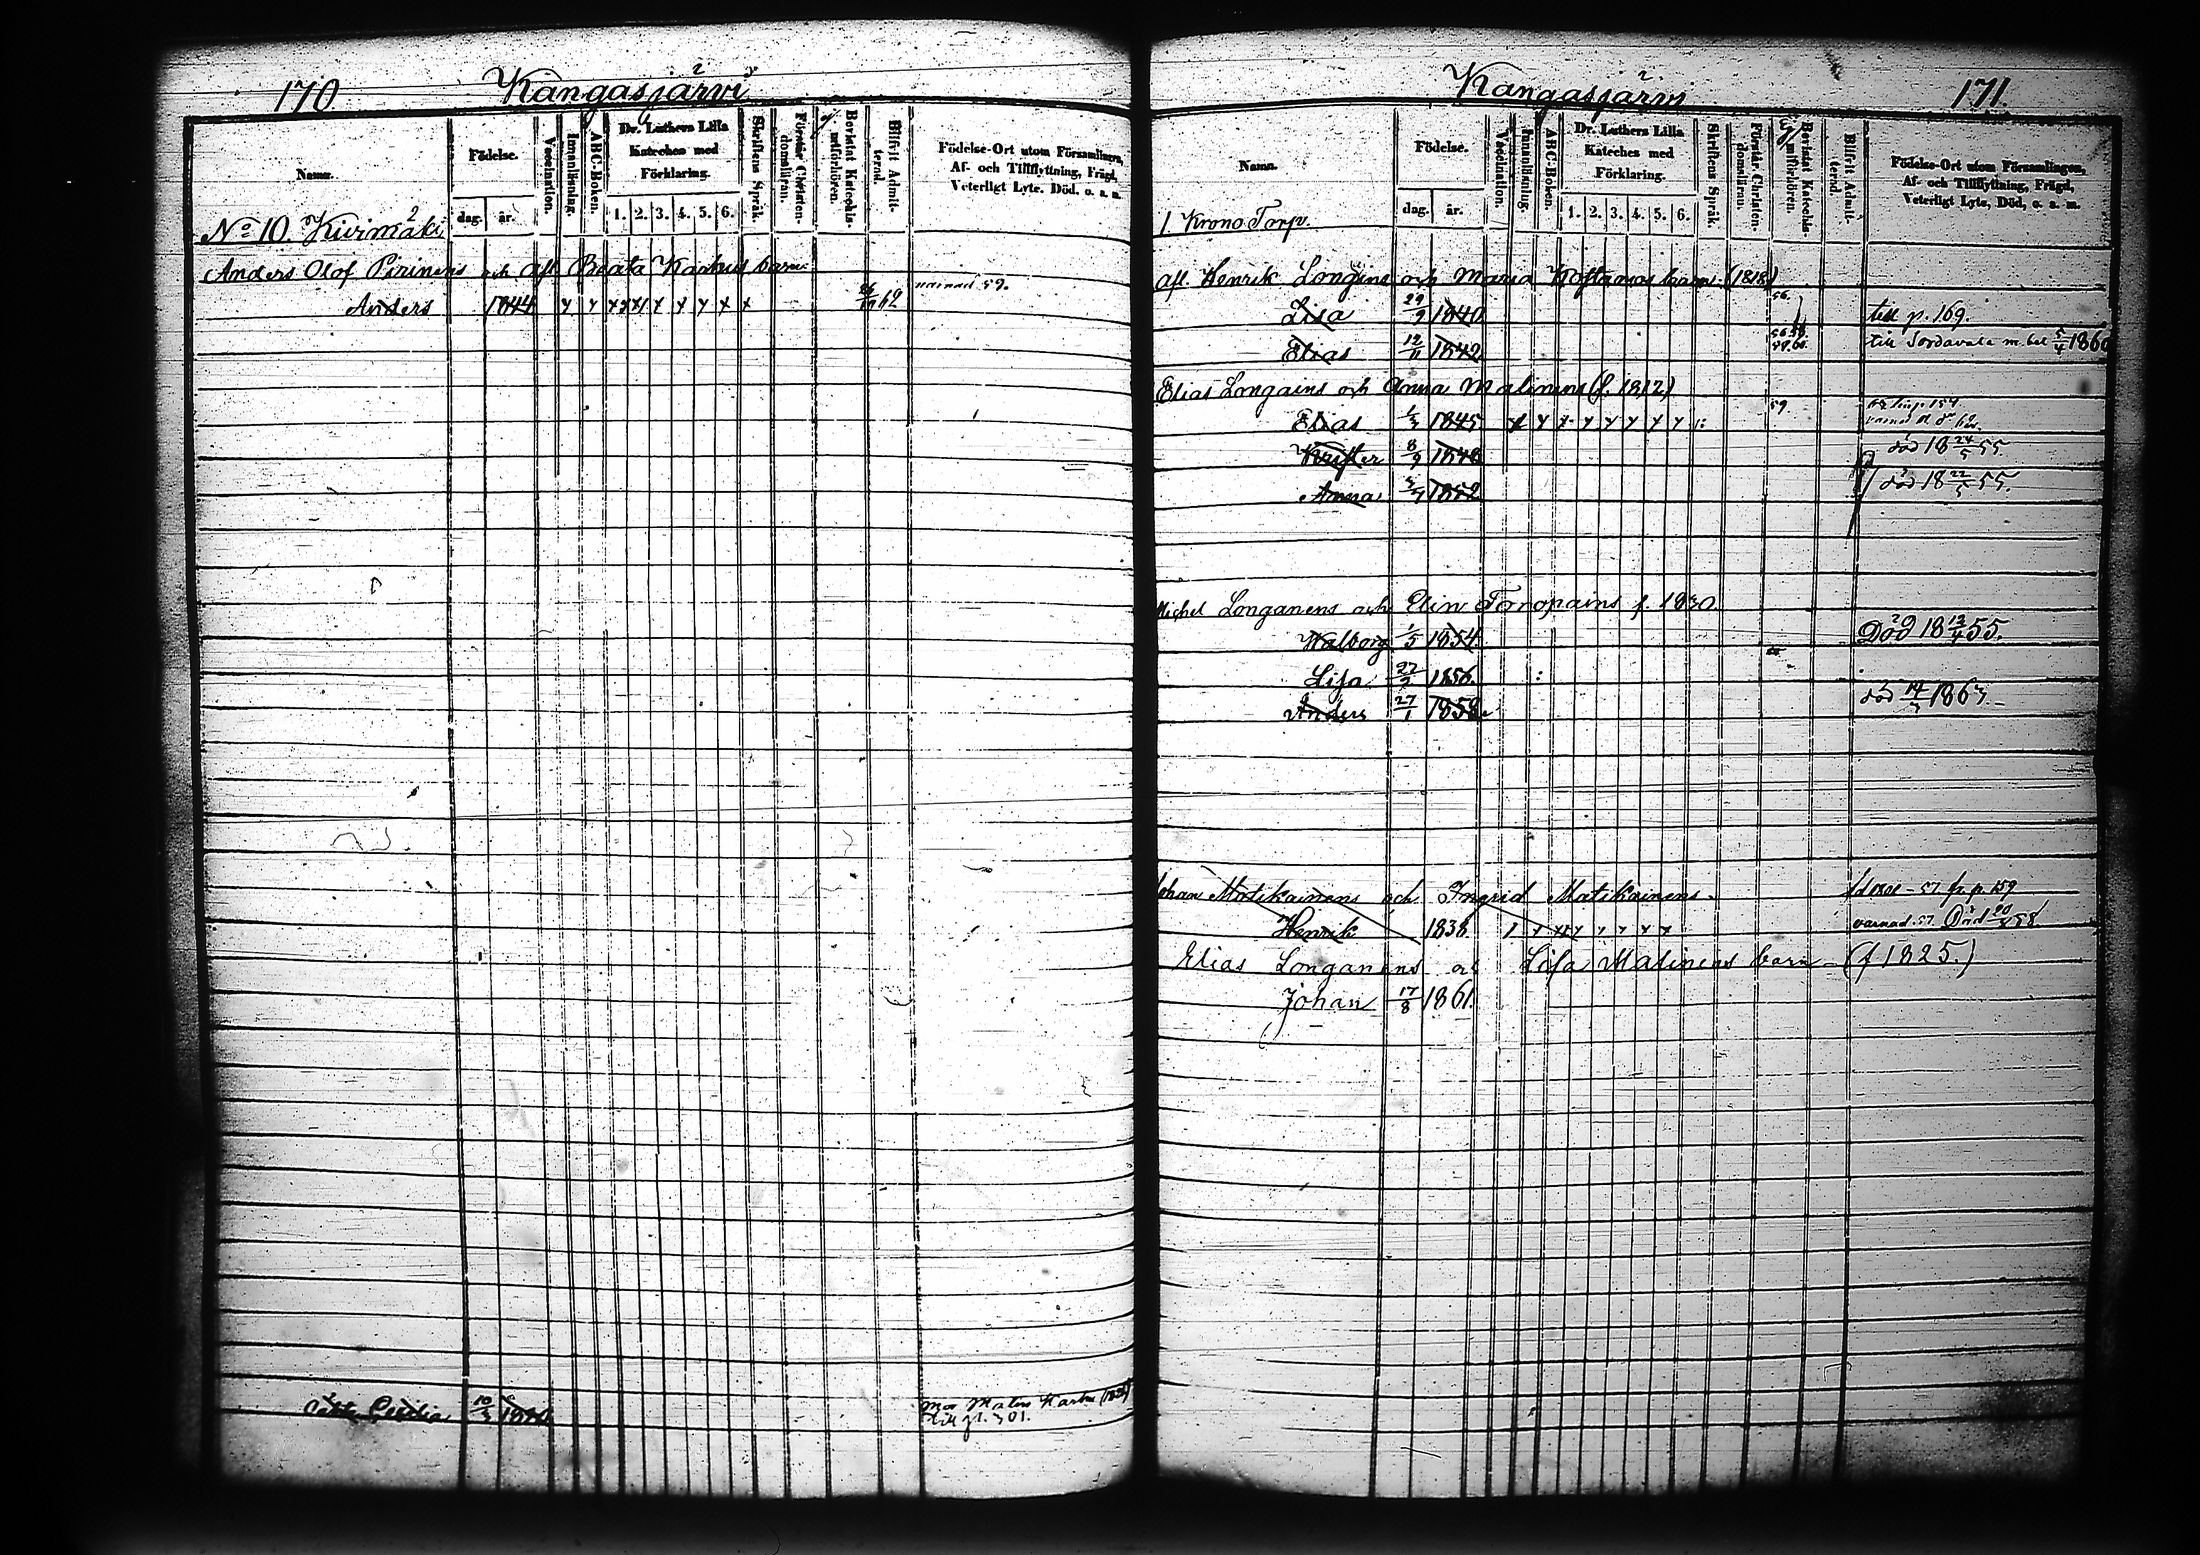 170 Kangasjärvi
Namn.
Födelse.
dag. år.
Vaccination.
Innanläsning.
ABC-Boken.
Dr. Luthers Lilla
Kateches med
Förklaring.
1. 2. 3. 4. 5. 6.
Skriftens Språk.
Förstår Christen-
domsläran.
Bevistat Katechis-
miförhören.
Blifvit Admit-
terad.
Födelse-Ort utom Församlingen,
Af- och Tillflyttning, Frägd,
Veterligt Lyte. Död. o. s. m.
No 10. Kivimäki
Anders Olof Pirinens och afl. Beata Karhus barn:
Anders 1844 62 varnad 59.
10/3
mor Malin Karhu
till p. 301.
Kangasjärvi 171.
Namn.
Födelse.
dag. år.
Vaccination.
Innanläsning.
ABC-Boken.
Dr. Luthers Lilla
Kateches med
Förklaring.
1. 2. 3. 4. 5. 6.
Skriftens Språk.
Förstår Christen-
domsläran.
Bevistat Katechis-
miförhören.
Blifvit Admit-
terad.
Födelse-Ort utom Församlingen,
Af- och Tillflyttning, Frägd,
Veterligt Lyte, Död, o. s. m.
1. Krono Torp.
afl. Henrik Longins och Maria barn (1818)
Lisa 29/9 1840 56. till p. 169.
Elias 12/11 1842 till Sordavala m. bet 5/4 1860
Elias Longains och Anna Malinens (f. 1812)
Elias 1845 59
Krister 8/9 1848 död 18 24/5 55.
Anna 1852 död 18 22/5 55.
Michel Longanens och Elin Toropains f. 1830
Walborg 1/5 1854. Död 18 55.
Lisa 1856.
Anders 27/1 1858. död 1863.
Johan Matikainens och Ingrid Matikainens. 57 fr. p. 159
Henrik 1838 varnad 57. Död 58
Elias Longanens och Lisa Malinens barn (f 1825.)
Johan 17/8 1861.